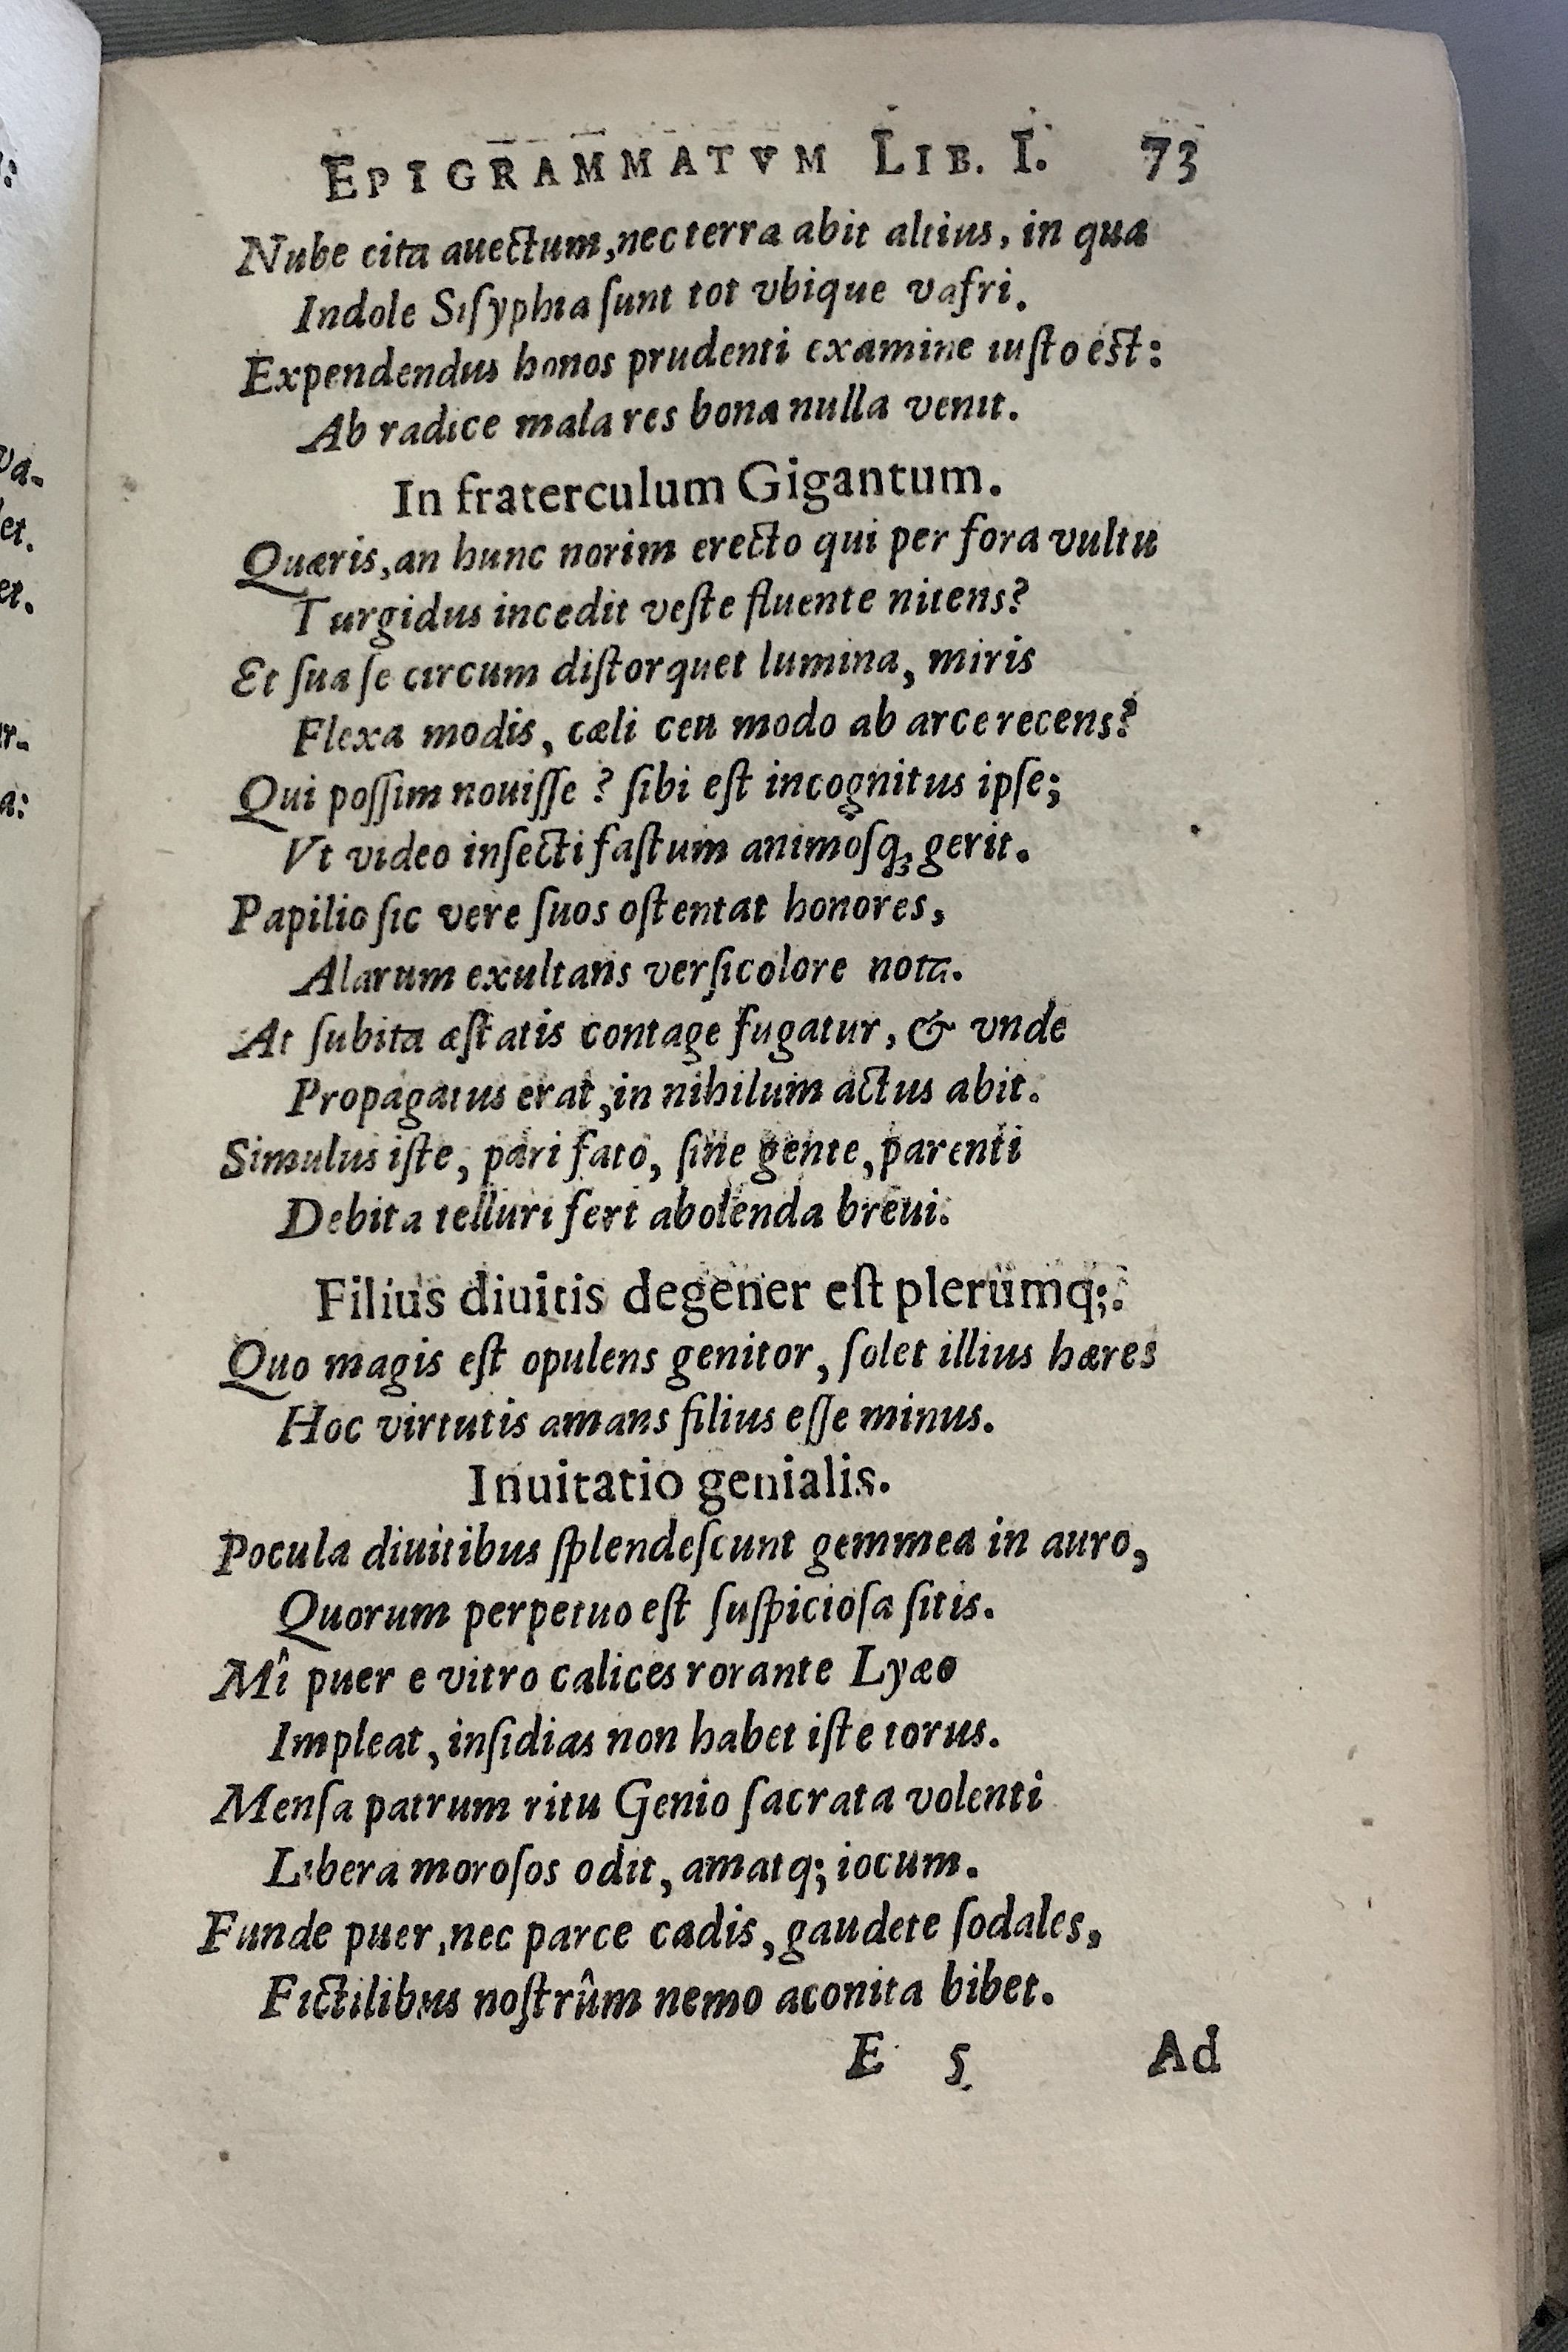 EPIGRAMMATVM LIB. I. 73
Nube cita auectum, nec terra abit altius, in qua
Indole Siſyphia ſunt tot vbique vafri.
Expendendus honos prudenti examine iuſto eſt:
Ab radice mala res bona nulla venit.
In fraterculum Gigantum.
Quæris, an hunc norim erecto qui per fora vultu
Turgidus incedit veſte fluente nitens?
Et ſua ſe circum diſtorquet lumina, miris
Flexa modis, cæli ceu modo ab arce recens?
Qui poſſim nouiſſe? ſibi eſt incognitus ipſe;
Vt video inſecti faſtum animoſq; gerit.
Papilio ſic vere ſuos oſtentat honores,
Alarum exultans verſicolore nota.
At ſubita æſtatis contage fugatur, & vnde
Propagatus erat, in nihilum actus abit.
Simulus iſte, pari fato, ſine gente, parenti
Debita telluri fert abolenda breui.
Filius diuitis degener eſt plerumq;.
Quo magis eſt opulens genitor, ſolet illius hæres
Hoc virtutis amans filius eſſe minus.
Inuitatio genialis.
Pocula diuitibus ſplendeſcunt gemmea in auro,
Quorum perpetuo eſt ſuſpicioſa ſitis.
Mî puer e vitro calices rorante Lyæo
Impleat, inſidias non habet iſte torus.
Menſa patrum ritu Genio ſacrata volenti
Libera moroſos odit, amatq; iocum.
Funde puer, nec parce cadis, gaudete ſodales,
Fictilibus noſtrûm nemo aconita bibet.
E 5 Ad